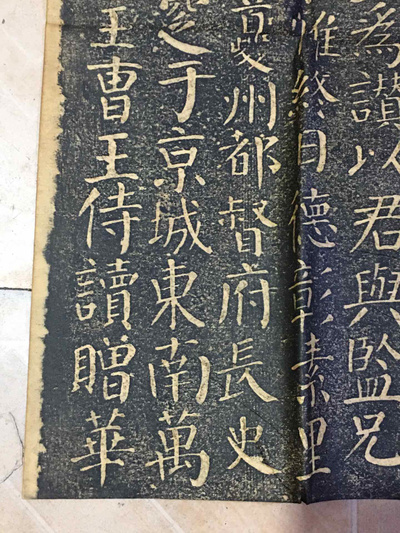 為讃以君與監兄
帷終日德彰素里
夔州都督府長史
窆于京城東南萬
王曹王侍讀贈華